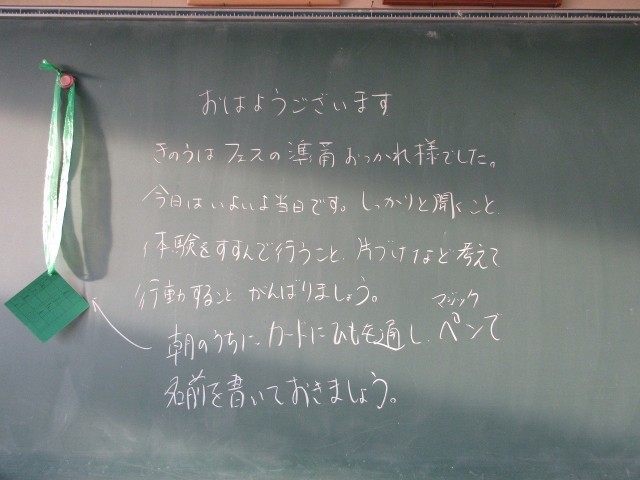 おはようございます
きのうは フェスの準備 おつかれ様でした。
今日はいよいよ当日です。しっかりと聞くこと、
体験をすすんで行うこと、片づけなど考えて
行動すること がんばりましょう。
マジック
朝のうちに、カードにひもを通し、ペンで
名前を書いておきましょう。